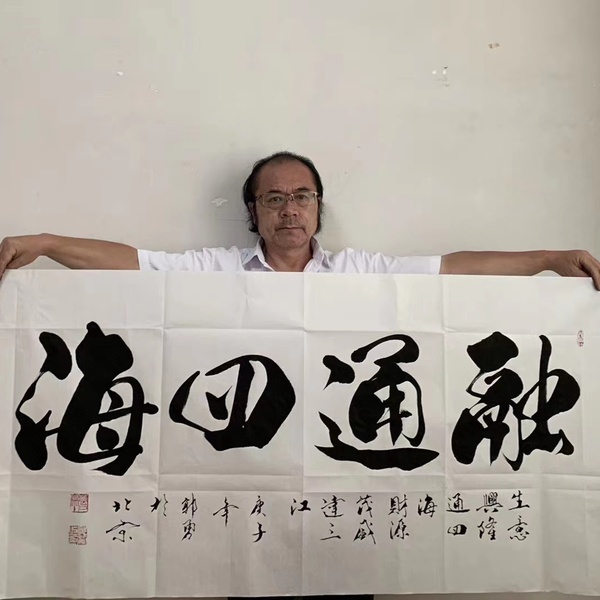 融通四海
生意
興隆
通四
海
財源
茂盛
達三
江
庚子
年
郭勇
於
北京